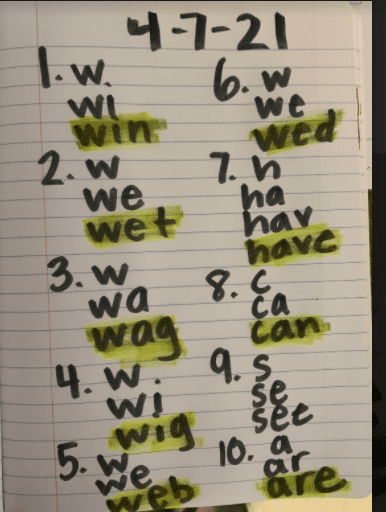 4-7-21
1. w.
wi
win
2. w
we
wet
3. w
wa
wag
4. w.
wi
wig
5. w
we
web
6. w
we
wed
7. h
ha
hav
have
8. c
ca
can
9. s
se
see
10. a
ar
are